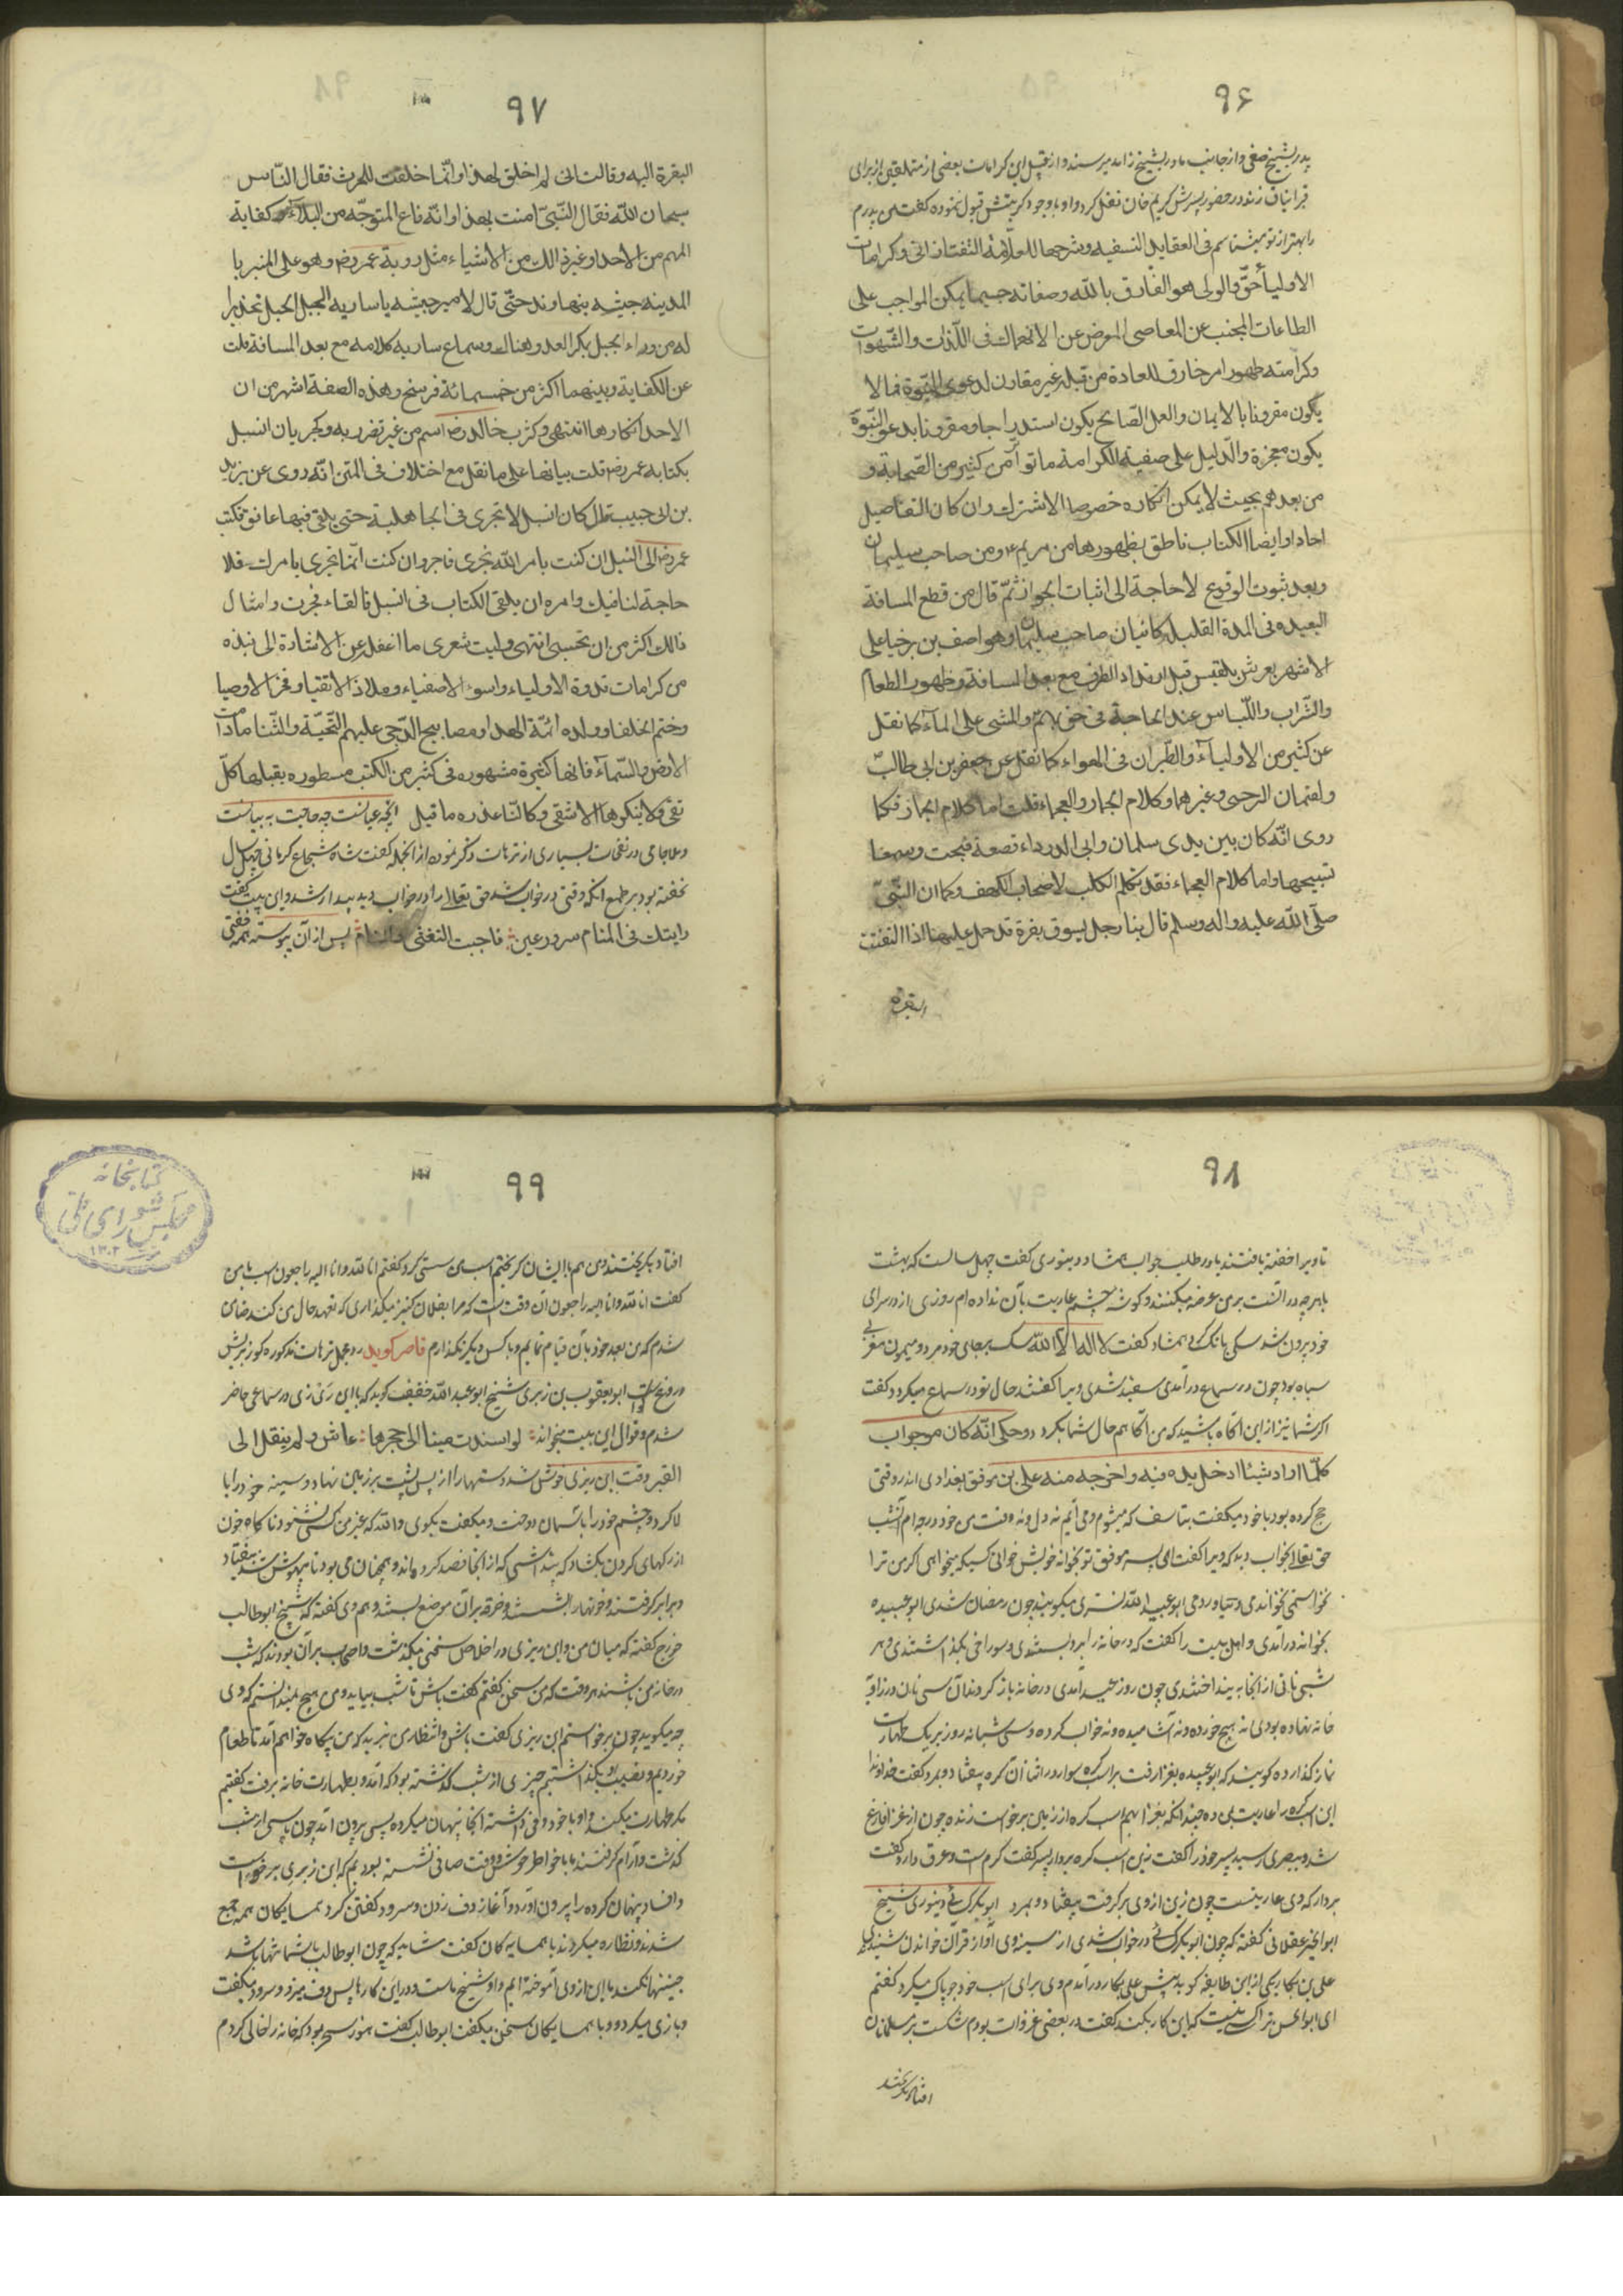 ٩۶
پدر بشیخ صفی و از جانب مادر بشیخ زاهد میرسند و از قبیل این کرامات بعضی از متملقین از برای
در حضور پسرش کریم خان نقل کرد و او با وجود نموده گفت من پدرم
را بهتر از تو میشناسم فی العقاید النسفیه و شرحها للعلامة التفتازانی و کرامات
الاولیاء حقّ و الولی هو العارف بالله و صفاته حسبما یمکن المواجب علی
الطاعات المجتنب عن المعاصی المعرض عن الانهماک فی اللّذات و الشّهوات
و کرامته ظهور امر خارق للعادة من قبله غیر مقارن لدعوی النّبوة فما لا
یکون مقرونا بالایمان و العمل الصّالح یکون استدراجا و مقرونا بدعوی النّبوّة
یکون معجزة و الدّلیل علی حقیة الکرامة ما تواتر من کثیر من الصّحابة و
من بعدهم بحیث لا یمکن انکاره خصوصا الاشتراک و ان کان التفاصیل
احادا و ایضا الکتاب ناطق بظهورها من مریم ع و من صاحب سلیمان
و بعد ثبوت الوقوع لا حاجة الی اثبات الجواز ثمّ قال من قطع المسافة
البعیده فی المدة القلیلة کاتیان صاحب سلیمان و هو اصف بن برخیا علی
الاشهر بعرش بلقیس قبل ارتداد الطرف مع بعد المسافة و ظهور الطعام
و الشّراب و اللّباس عند الحاجة فی حق مریم و المشی علی الماء کما نقل
عن کثیر من الاولیاء و الطّیران فی الهواء کما نقل عن جعفر بن ابی طالب
و لقمان السرخسی و غیرهما و کلام الجماد و العجماء قلت اما کلام الجماد فکما
روی انّه کان بین یدی سلمان و ابی الدرداء قصعة فسبحت و سمعا
تسبیحها و اما کلام العجماء فقد تکلم الکلب لاصحاب الکهف و کما ان النّبیّ
صلّی الله علیه و اله وسلم قال بینا رجل یسوق بقرة قد حمل علیها اذا التفتت
البقرة
٩٧
البقرة الیه و قالت انی لم اخلق لهذا و انّما خلقت للحرث فقال النّاس
سبحان الله فقال النّبیّ امنت بهذا و اندفاع المتوجّه من البلاء و کفایة
المهم من الاعداء و غیر ذالک من الاشیاء مثل رویة عمر رض و هو علی المنبر با
المدینه جیشه بنهاوند حتّی قال لامیر جیشه یا ساریه الجبل الجبل تحذیرا
له من وراء الجبل بکر العدو هناک و سماع ساریه کلامه مع بعد المسافة قلت
عن الکفایة و بینهما اکثر من خمسمائة فرسخ و هذه الصفة اشهر من ان
الاحد انکارها انتهی و کشرب خالد رض السم من غیر تضرر به و کجریان النیل
بکتابه عمر رض قلت بیانها علی ما نقل مع اختلاف فی المتن انّه روی عن یزید
بن ابی حبیب قال کان النیل لا تجری فی الجاهلیة حتی یلقی فیها عاتق فکتب
عمر رض الی النیل ان کنت بامر الله تجری فاجر و ان کنت انّما تجری بامرک فلا
حاجة لنا فیک و امره ان یلقی الکتاب فی النیل فالقاء فجرت و امثال
ذالک اکثر من ان تحصی انتهی و لیت شعری ما اغفل عن الاشادة الی نبذه
من کرامات قدوة الاولیاء و اسوء الاصفیاء و ملاذ الاتقیا و فخر الاوصیا
و ختم الخلفا و ولده ائمّة الهدا و مصابیح الدّجی علیهم التّحیّة و الثّنا ما دامت
الارض و السّماء فانها کثیرة مشهوره فی کثیر من الکتب مسطوره یقبلها کلّ
تقی و لا ینکرها الا شقی و کانّنا عذره ما قیل آنچه عیانست چه حاجت به بیانست
و ملا جامی در نفحات بسیاری از ترهات ذکر نموده از آنجمله گفت شاه شجاع کرمانی چهل سال
نخفته بود بر طمع انکه وقتی در خواب شد حق تعالی را در خواب دید بیدار شد و این بیت گفت
رایتک فی المنام سرور عینی فاجبت التنعس و المنام پس از آن پیوسته همه خفتی
٩٨
تا ویرا خفته یافتند یا در طلب خواب ممشاد دینوری گفت چهل سالست که بهشت
با هرچه در آنست بر من عرضه میکنند و گوشه چشم عاریت بآن نداده ام روزی از در سرای
خود بیرون شد سگی بانگ کرد ممشاد گفت لا اله الا الله سک بجای خود مرد و میمون مغربی
سیاه بود چون در سماع درآمدی سفید شدی ویرا گفتند حال تو در سماع میگردد گفت
اگر شما نیز از این آگاه باشید که من آگاهم حال شما بگردد و حکی انّه کان جراب
کلّما اراد شیئا ادخل یده فیه و اخرجه منه علی بن موفق بغدادی اند روقتی
حج کرده بود با خود میگفت بتاسف که میشوم و می آیم نه دل و نه وقت من خود در چه ام آنشب
حق تعالی بخواب دید که ویرا گفت ای پسر موفق تو بخوانه خویش خوانی کسیکه نخواهی اگر من ترا
نخواستمی نخواندمی و نیاوردمی ابو عبید الله تستری میگویند چون رمضان شدی ابو عبیده
بخوانه درآمدی و اهل بیت را گفت که در خانه را بر او بستندی و سوراخی بگذاشتندی و هر
شبی نانی از آنجا به بینداختندی چون روز عید آمدی در خانه باز کردند آن سی نان در زاویه
خانه نهاده بودی نه هیچ خورده و نه آشامیده و نه خواب کرده و سی شبانه روز بر یک طهارت
نماز گذارده گویند که ابو عبیده بغزا رفت بر اسب کره سوار در اثنا آن کره بیفتاد و بمرد گفت خداوندا
این اسب کره را عاریت بمن ده چندانکه بغزا بروم اسب کره از زمین برخواست زنده چون از غزا فارغ
شد و ببصری رسید پسر خود را گفت زین اسب کره بردار پسر گفت گرم است و عرق دارد گفت
بردار که وی عاریتست چون زین از وی برگرفت بیفتاد و بمرد ابو بکر کسائی دینوری شیخ
ابو الخیر عسقلانی گفته که چون ابو بکر کسائی در خواب شدی از سینه وی آواز قرآن خواندن شنیدی
علی بن بکار یکی از این طایفه گوید پیش علی بکار درآمدم وی برای اسب خود جو پاک میکرد گفتم
ای ابو الحسن ترا کسی نیست که این کار بکند گفت در بعضی غزوات بودم شکست بر مسلمانان
افتاد بگریختند
٩٩
افتاد بگریختند و من هم با ایشان گریختم اسب من سستی کرد گفتم انا لله و انا الیه راجعون اسب با من
گفت انا لله و انا الیه راجعون آن وقت است که مرا بفلان کنیز میگذاری که تعهد حال من کند ضامن
شدم که من بعد خود بآن قیام نمایم و بکس دیگر نگذارم قاصر گوید رد عمل ترهات مذکوره کوز بریش
دروغ است ابو یعقوب بن زیزی شیخ ابو عبد الله خفیف گوید که با ابن زیزی در سماعی حاضر
شدم و قوال این بیت بخواند لو اسندت میتا الی حجرها عاش و لم ینقل الی
القبر وقت ابن زیزی خوش شد و دستها را از پس پشت بر زمین نهاد و سینه خود را با
لا کرد و چشم خود را بآسمان دوخت و میگفت بگوی و الله که غیر من کسی نشنود ناگاه خون
از رگهای گردن بگشاد که پنداشتی که از آنجا فصد کرده اند و همچنان می بود تا بیهوش شد بیفتاد
ویرا برگرفتند و خونها را بشستند و خرقه بر آن موضع بستند و هم وی گفته که شیخ ابو طالب
خزرج گفته که میان من و ابن زیزی در اخلاص سخنی میگذشت و اصحاب بر آن بودند که شب
در خانه من باشند هر وقت که من سخن گفتم گفت باش تا شب بیاید و من هیچ نمیدانستم که وی
چه میگوید چون برخواستم ابن زیزی گفت باش و انتظار من نبرید که من بیگاه خواهم آمد تا طعام
خوردیم و نصیب او بگذاشتیم چیزی از شب گذشته بود که آمد و بطهارت خانه برفت گفتیم
مگر طهارت میکند و او با خود دفی داشته آنجا پنهان میکرده پس بیرون آمد چون پاسی از شب
گذشت و آرام گرفتند ما با خواطر خوش و وقت صافی نشسته بودیم که ابن زیزی برخواست
و انساد پنهان کرده را بیرون آورد و آغاز دف زدن و سرود گفتن کرد همسایگان همه جمع
شدند و نظاره میکردند با همسایه گان گفت شاید که چون ابو طالب با شما تنها باشد
چنین نکند ما این از وی آموخته ایم و او شیخ ماست و در این کارها پس دف میزد و سرود میگفت
و بازی میکرد و با همسایگان سخن میگفت ابو طالب گفت هنوز سحر بود که خانه را خالی کردم
کتابخانه
مجلس شورای ملی
١٣٠٢